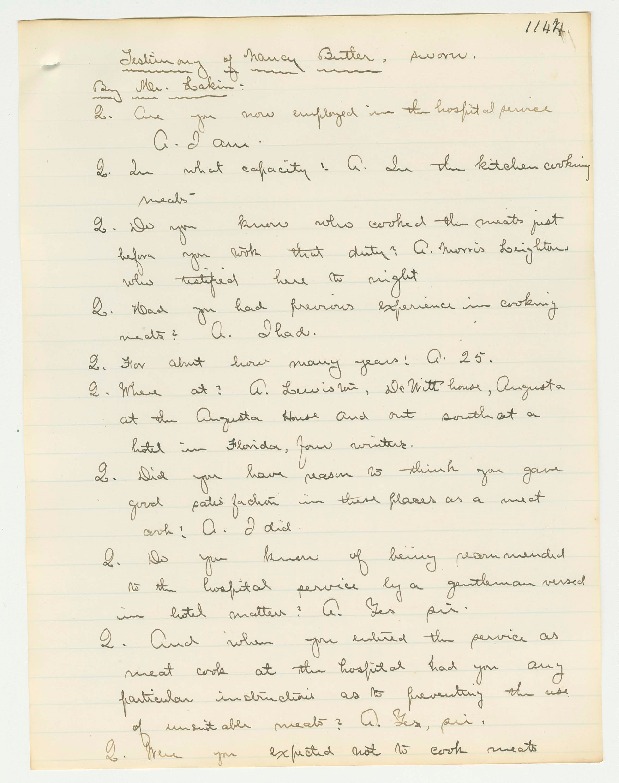 1144.
Testimony of Nancy Butler, sworn.
By Mr. Lakin:
Q. Are you now employed in the hospital service
A. I am.
Q. In what capacity? A. In the kitchen cooking
meats
Q. Do you know who cooked the meats just
before you took that duty? A. Morris Leighton
who testified here to night
Q. Had you had previous experience in cooking
meats? A. I had.
Q. For about how many years? A. 25.
Q. Where at? A. Lewiston, DeWitt house, Augusta
at the Augusta House and out south at a
hotel in Florida, four winters.
Q. Did you have reason to think you gave
good satisfaction in these places as a meat
cook? A. I did.
Q. Do you know of being recommended
to the hospital service by a gentleman versed
in hotel matters? A. Yes sir.
Q. And when you entered the service as
meat cook at the hospital had you any
particular instructions as to preventing the use
of unsuitable meats? A. Yes, sir.
Q. Were you expected not to cook meats